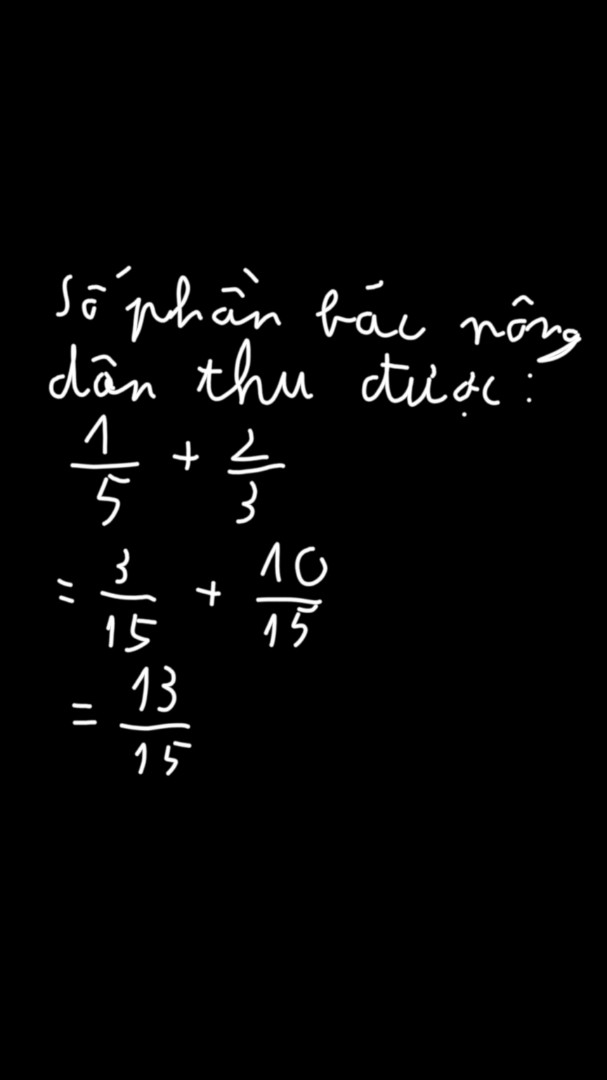 Số phần bác nông
dân thu được:
1/5 + 2/3
= 3/15 + 10/15
= 13/15